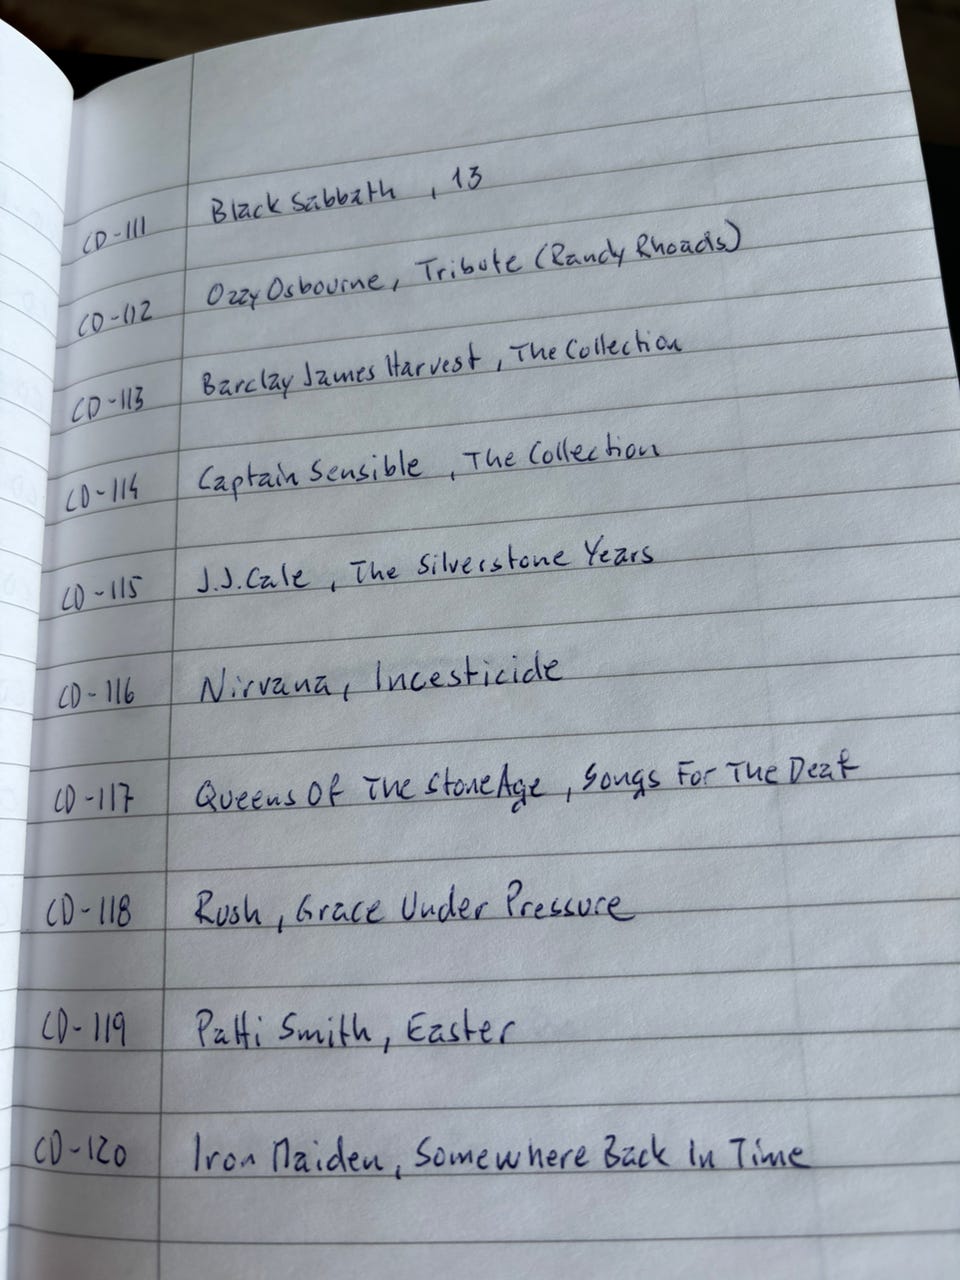 CD-111 Black Sabbath, 13
CD-112 Ozzy Osbourne, Tribute (Randy Rhoads)
CD-113 Barclay James Harvest, The Collection
CD-114 Captain Sensible, The Collection
CD-115 J.J. Cale, The Silverstone Years
CD-116 Nirvana, Incesticide
CD-117 Queens Of The Stone Age, Songs For The Deaf
CD-118 Rush, Grace Under Pressure
CD-119 Patti Smith, Easter
CD-120 Iron Maiden, Somewhere Back In Time